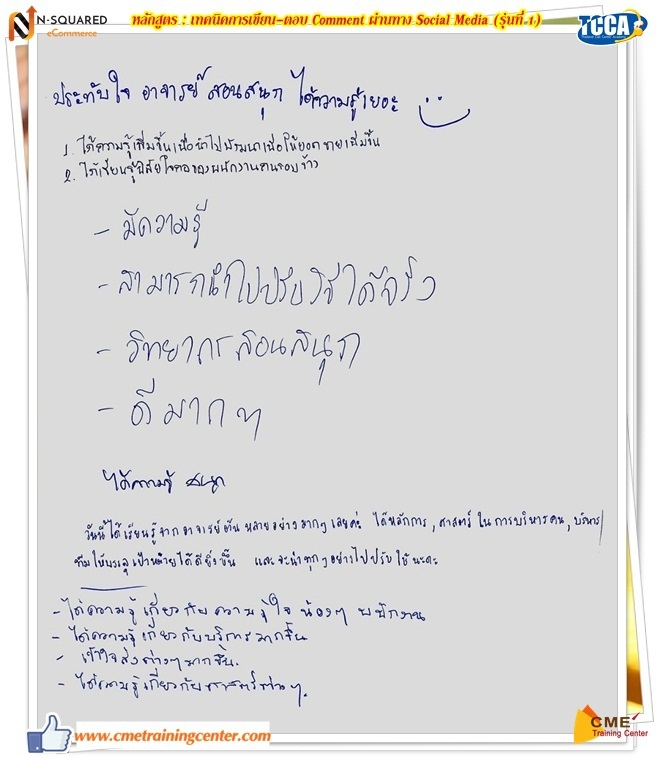 N-SQUARED
eCommerce
หลักสูตร : เทคนิคการเขียน-ตอบ Comment ผ่านทาง Social Media (รุ่นที่ 1)
TCCA
ประทับใจ อาจารย์ สอนสนุก ได้ความรู้เยอะ
1. ได้ความรู้เพิ่มขึ้นเพื่อนำไปพัฒนาเพื่อให้ยอดขายเพิ่มขึ้น
2. ได้เรียนรู้นิสัยใจคอของพนักงานคนรอบข้าง
- มีความรู้
- สามารถนำไปปรับใช้ได้จริง
- วิทยากรสอนสนุก
- ดีมากๆ
ได้ความรู้ สนุก
วันนี้ได้เรียนรู้จากอาจารย์ต้น หลายอย่างมากๆ เลยค่ะ ได้หลักการ, ศาสตร์ ในการบริหารคน, บริหาร
ทีมให้บรรลุเป้าหมายได้ดียิ่งขึ้น และจะนำทุกๆอย่างไปปรับใช้นะคะ
- ได้ความรู้เกี่ยวกับความรู้ใจน้องๆ พนักงาน
- ได้ความรู้เกี่ยวกับบริการมากขึ้น
- เข้าใจสิ่งต่างๆมากขึ้น.
- ได้ความรู้เกี่ยวกับศาสตร์ต่างๆ.
www.cmetrainingcenter.com
CME
Training Center